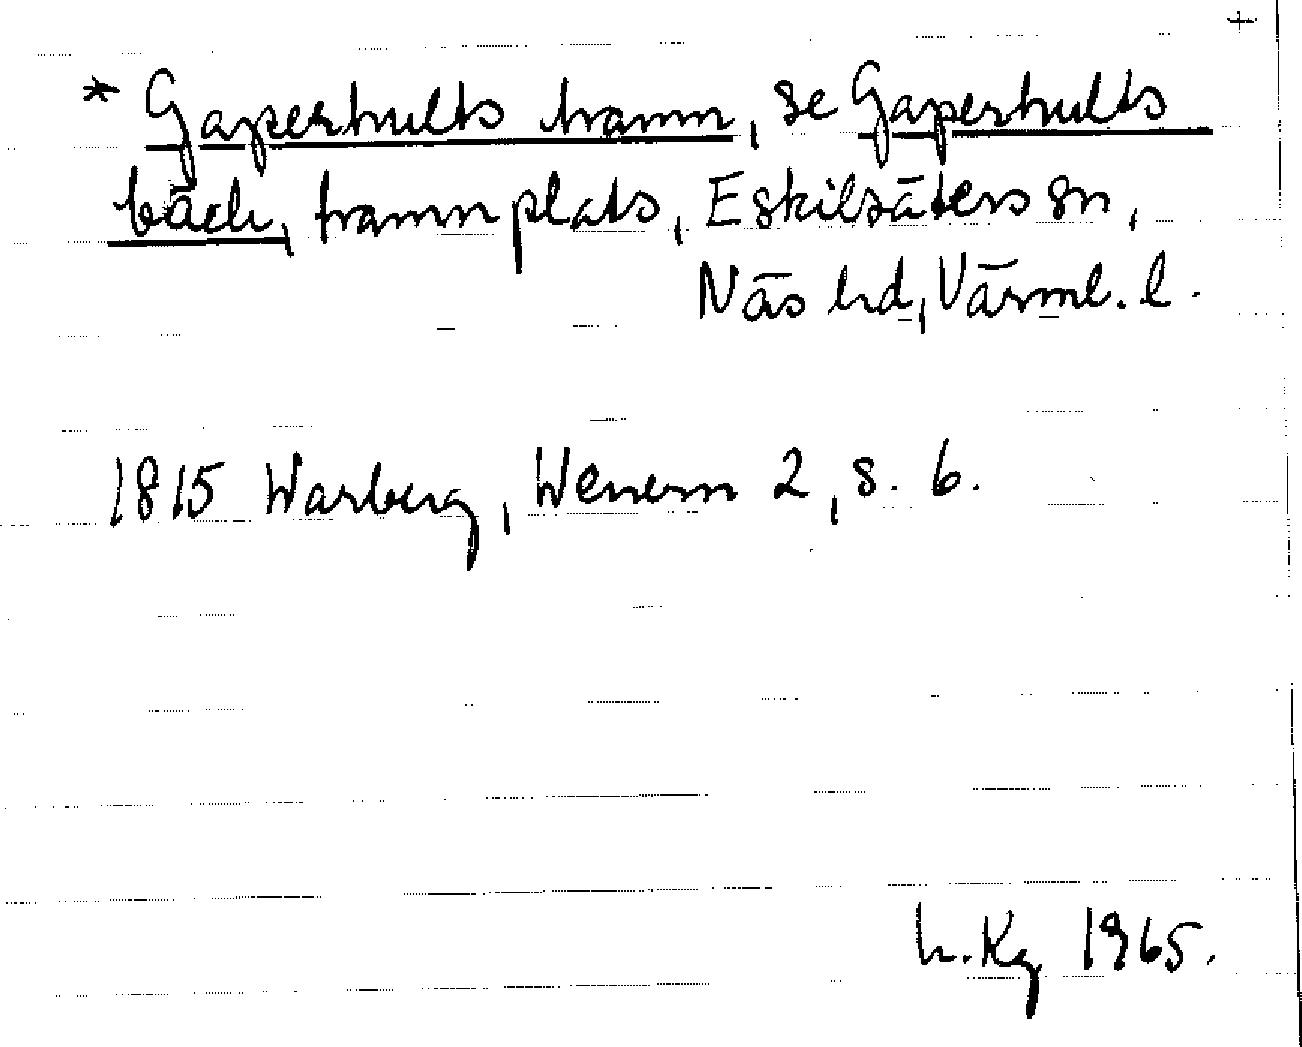 +
* Gaperhults hamn, se Gaperhults
bäck, hamnplats, Eskilsäters sn,
Näs hd, Värml. l.
1815 Warberg, Wenern 2, s. 6.
h. Kg 1965.